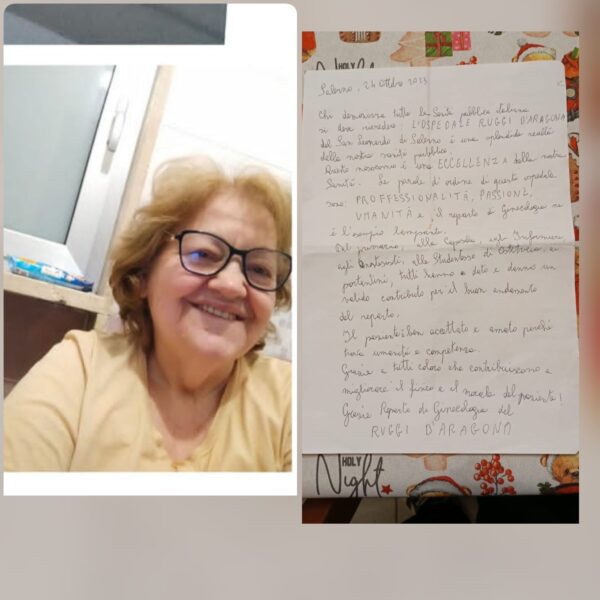 Salerno, 24 Ottobre 2023
Chi denorizza tutta la Sanità pubblica italiana
si deve ricredere: L'OSPEDALE RUGGI D'ARAGONA
del San Leonardo di Salerno è una splendida realtà
della nostra sanità pubblica.
Questo nosocomio è una ECCELLENZA della nostra
Sanità. Le parole d'ordine di questo ospedale
sono: PROFFESSIONALITÀ, PASSIONE,
UMANITÀ e il reparto di Ginecologia ne
è l'esempio lampante.
Dal primario, alla Caposala, agli Infermieri,
agli Anestesisti, alle Studentesse di Ostetricia, ai
portantini, tutti hanno dato e danno un
valido contributo per il buon andamento
del reparto.
Il paziente è ben accettato e amato perché
trova umanità e competenza.
Grazie a tutti coloro che contribuiscono a
migliorare il fisico e il morale del paziente!
Grazie Reparto di Ginecologia del
RUGGI D'ARAGONA
HOLY
Night
HOLY
Night